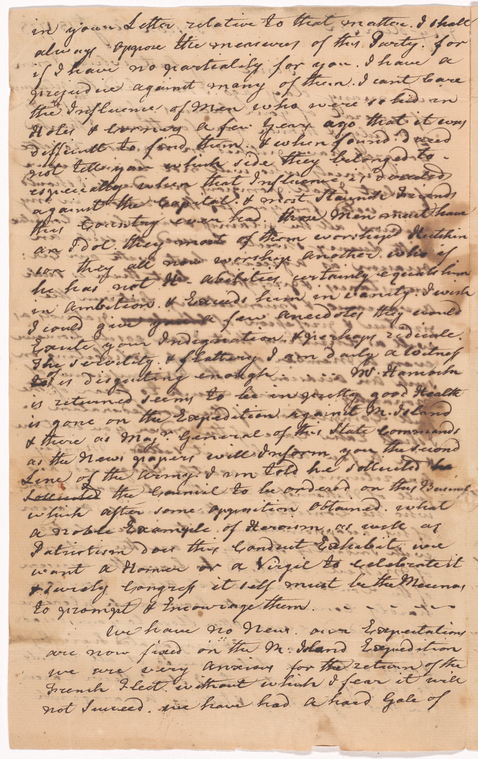 in your Letter relative to that matter. I shall
always oppose the measures of this Party. for
if I have no partiality for you. I have a
prejudice against many of them. I cant bare
the Influence of Men who were so hid in
Holes & Corners a few years ago that it was
difficult to find them. & when found dared
not tell you which side they belonged to.
especially when that Influence is directed
against the Capital & most Staunch Friends
this Country ever had. these Men must have
an Idol. they most of them worshiped Hutchin
son they all now worship another who if
he has not Abilities certainly equals him
in Ambition. & Exceeds him in Vanity. I wish
I could give a few anecdotes they would
Excite your Indignation & perhaps ridicule.
The Servility & flattery I am daily a Witness
to is disgusting enough. Mr Hancock
is returned seems to be in pretty good Health
is gone on the Expedition against R. Island
& there as Majr General of this State Commands
as the News papers will Inform you the second
Line of the Army. I am told he solicited
the Council to be ordered on this Business
which after some opposition obtained. what
a noble Example of Heroism. as well as
Patriotism does this Conduct Exhibit. we
want a Homer or a Virgil to Celebrate it
& surely Congress it self must be the Mecenas
to prompt & Encourage them. - - - - - -
We have no News. our Expectations
are now fixed on the R. Island Expedition
we are very anxious for the return of the
French Fleet. without which I fear it will
not Succeed. we have had a hard Gale of